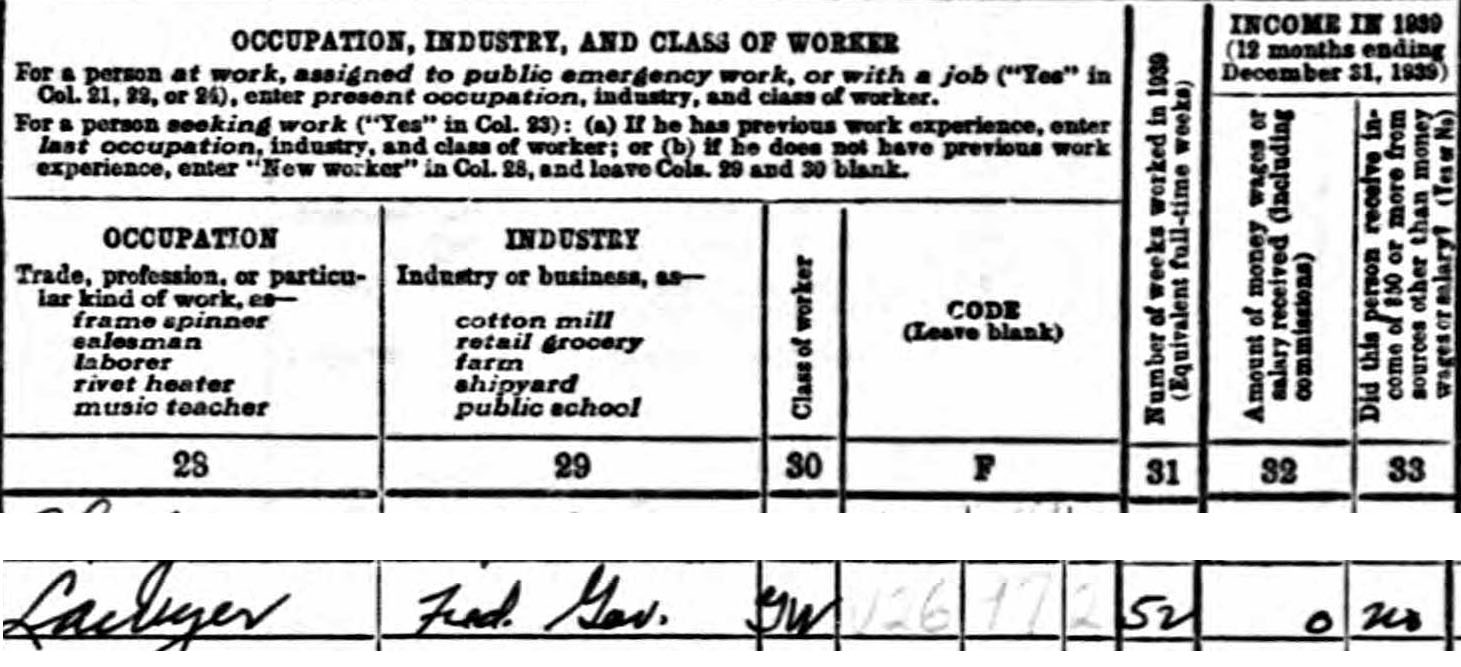 OCCUPATION, INDUSTRY, AND CLASS OF WORKER
For a person at work, assigned to public emergency work, or with a job ("Yes" in
Col. 21, 22, or 24), enter present occupation, industry, and class of worker.
For a person seeking work ("Yes" in Col. 23): (a) If he has previous work experience, enter
last occupation, industry, and class of worker; or (b) if he does not have previous work
experience, enter "New worker" in Col. 28, and leave Cols. 29 and 30 blank.
OCCUPATION
Trade, profession, or particu-
lar kind of work, as—
frame spinner
salesman
laborer
rivet heater
music teacher
INDUSTRY
Industry or business, as—
cotton mill
retail grocery
farm
shipyard
public school
Class of worker
CODE
(Leave blank)
Number of weeks worked in 1939
(Equivalent full-time weeks)
INCOME IN 1939
(12 months ending
December 31, 1939)
Amount of money wages or
salary received (including
commissions)
Did this person receive in-
come of $50 or more from
sources other than money
wages or salary? (Yes or No)
28 29 30 F 31 32 33
Lawyer Fed. Gov. GW V26 17 2 52 0 no